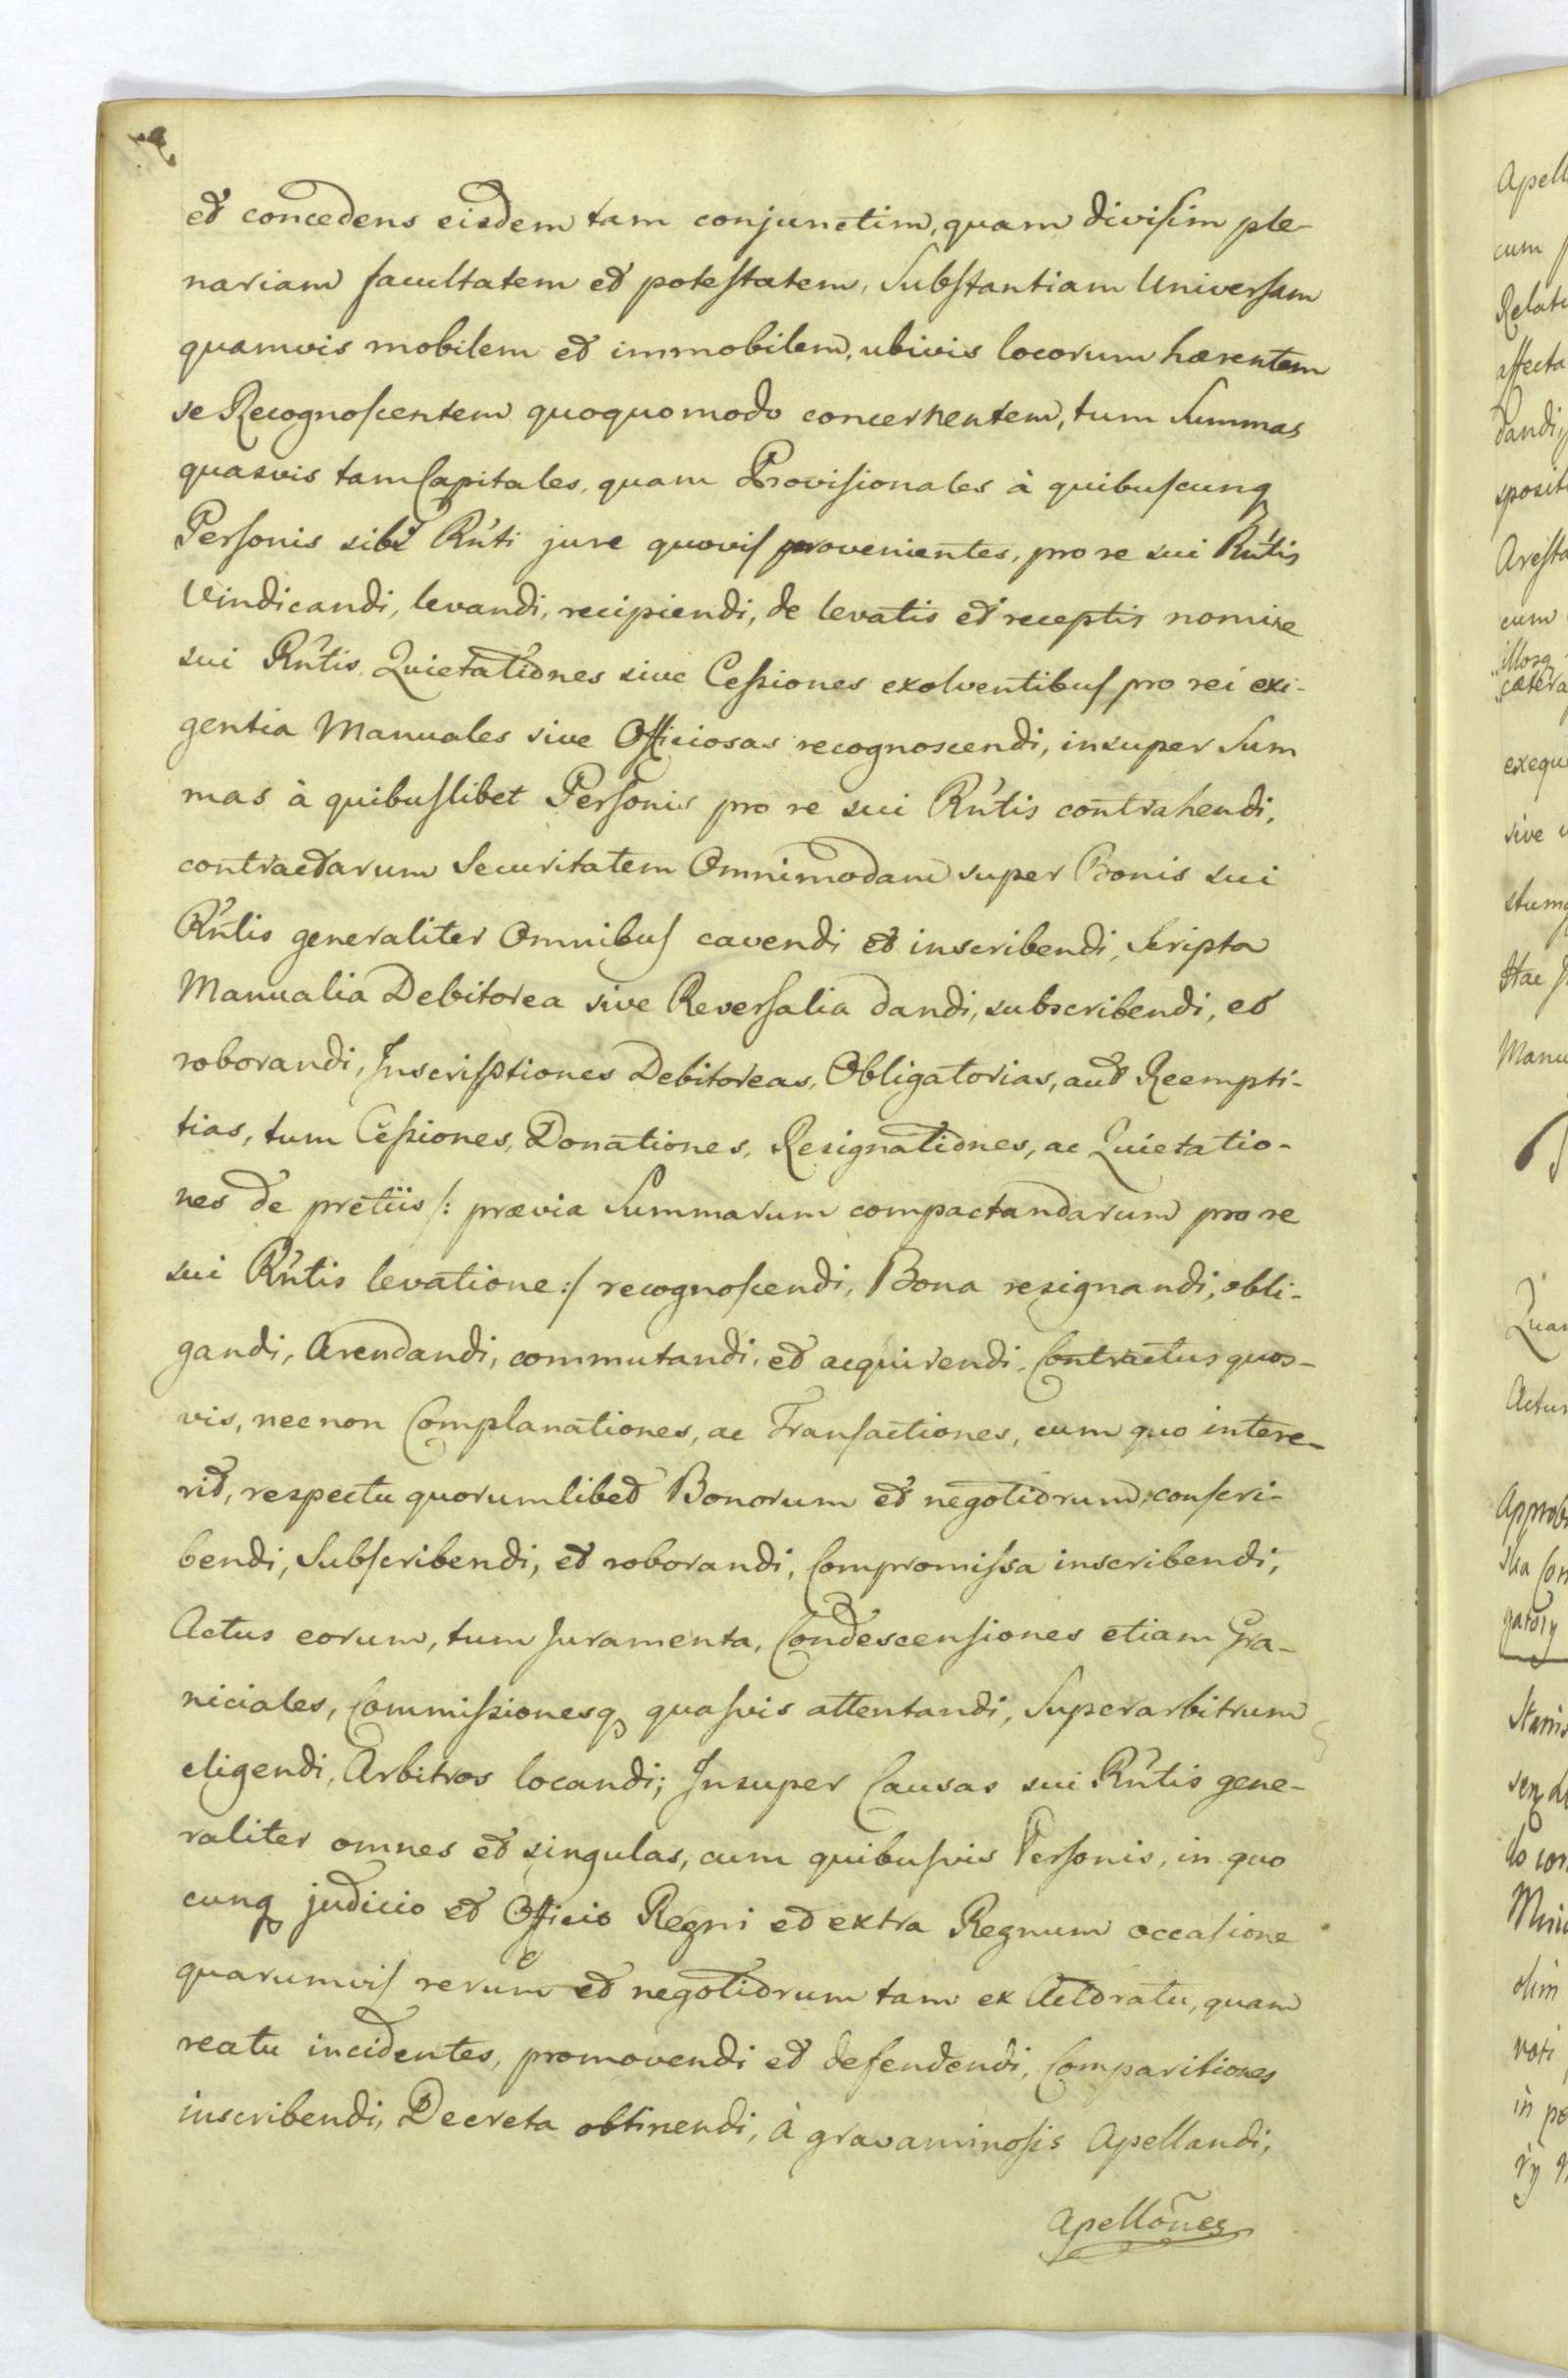 et concedens eisdem tam conjunctim, quam divisim ple-
nariam facultatem et potestatem, Substantiam Universam
quamvis mobilem et immobilem, ubivis locorum hærentem
se Recognoscentem quoquomodo concernentem, tum Summas
quasvis tam Capitales, quam Provisionales à quibuscunq
Personis sibi Rñti jure quovis provenientes, pro re sui Rñtis
Vindicandi, levandi, recipiendi, de levatis et receptis nomine
sui Rñtis Quietationes sive Cessiones exolventibus pro rei exi-
gentia Manuales sive Officiosas recognoscendi, insuper Sum
mas à quibuslibet Personis pro re sui Rñtis contrahendi,
contractarum Securitatem Omnimodam super Bonis sui
Rñtis generaliter Omnibus cavendi et inscribendi, Scripta
Manualia Debitorea sive Reversalia dandi, subscribendi, et
roborandi, Inscriptiones Debitoreas, Obligatorias, aut Reempti-
tias, tum Cessiones, Donationes, Resignationes, ac Quietatio-
nes de pretiis /: prævia Summarum compactandarum pro re
sui Rñtis levatione :/ recognoscendi, Bona resignandi, obli-
gandi, Arendandi, commutandi, et acquirendi, Contractus quos-
vis, nec non Complanationes, ac Transactiones, cum quo intere-
rit, respectu quorumlibet Bonorum et negotiorum, conscri-
bendi, Subscribendi, et roborandi, Compromissa inscribendi,
Actus eorum, tum Juramenta, Condescensiones etiam Gra-
niciales, Commissionesq quasvis attentandi, Superarbitrum
eligendi, Arbitros locandi; Insuper Causas sui Rñtis gene-
raliter omnes et singulas, cum quibusvis Personis, in quo
cunq judicio et Officio Regni et extra Regnum occasione
quarumvis rerum et negotiorum tam ex Actoratu, quam
reatu incidentes, promovendi et defendendi, Comparitiones
inscribendi, Decreta obtinendi, à gravaminosis Apellandi,
Apellões
Apell
cum
Relati
affecta
dandi,
sposit
Aresta
cum
illorq
cætera
exequ
sive
stumq
Hac
Manu
Quam
Actu
Approb
gatory
Stanis
olim